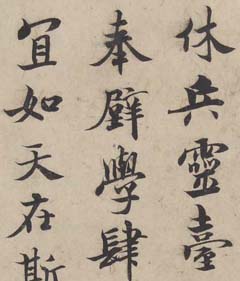 休兵靈臺
奉璧學肆
宜如天在斯